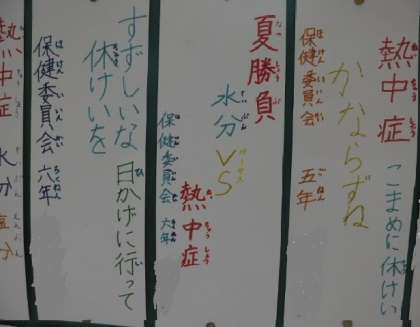 熱中症 こまめに休けい
かならずね
保健委員会 五年
夏勝負
水分VS熱中症
保健委員会 六年
すずしいな
休けいを
日かげに行って
保健委員会 六年
熱中症 水分塩分